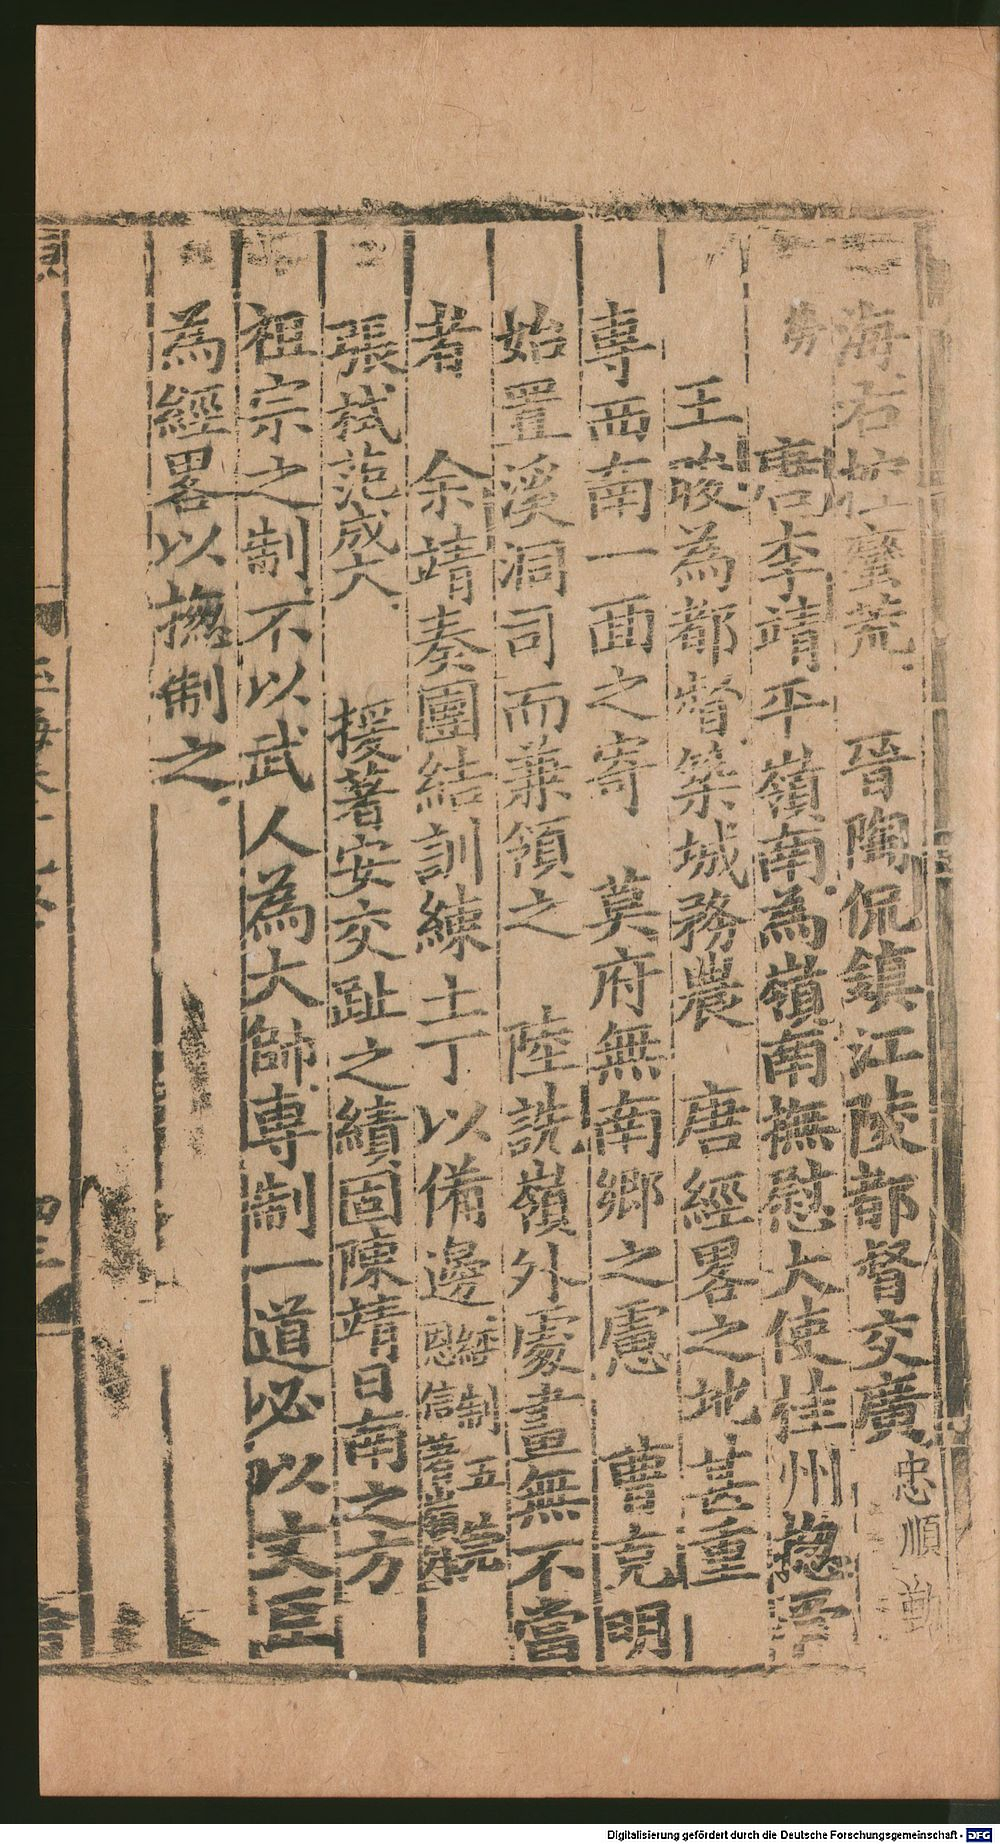 海右控蠻荒　晉陶侃鎮江陵都督交廣忠順勤
勞　唐李靖平嶺南為嶺南撫慰大使桂州揔管
王晙為都督築城務農　唐經畧之地甚重
專西南一面之寄　莫府無南鄉之慮　曹克明
始置溪洞司而兼領之　陸詵嶺外處畫無不當
者　余靖奏團結訓練土丁以備邊經制五莞恩信著嶺外
張栻范成大　援著安交趾之績固陳靖日南之方
祖宗之制不以武人為大帥專制一道必以文臣
為經畧以揔制之
Digitalisierung gefördert durch die Deutsche Forschungsgemeinschaft - DFG